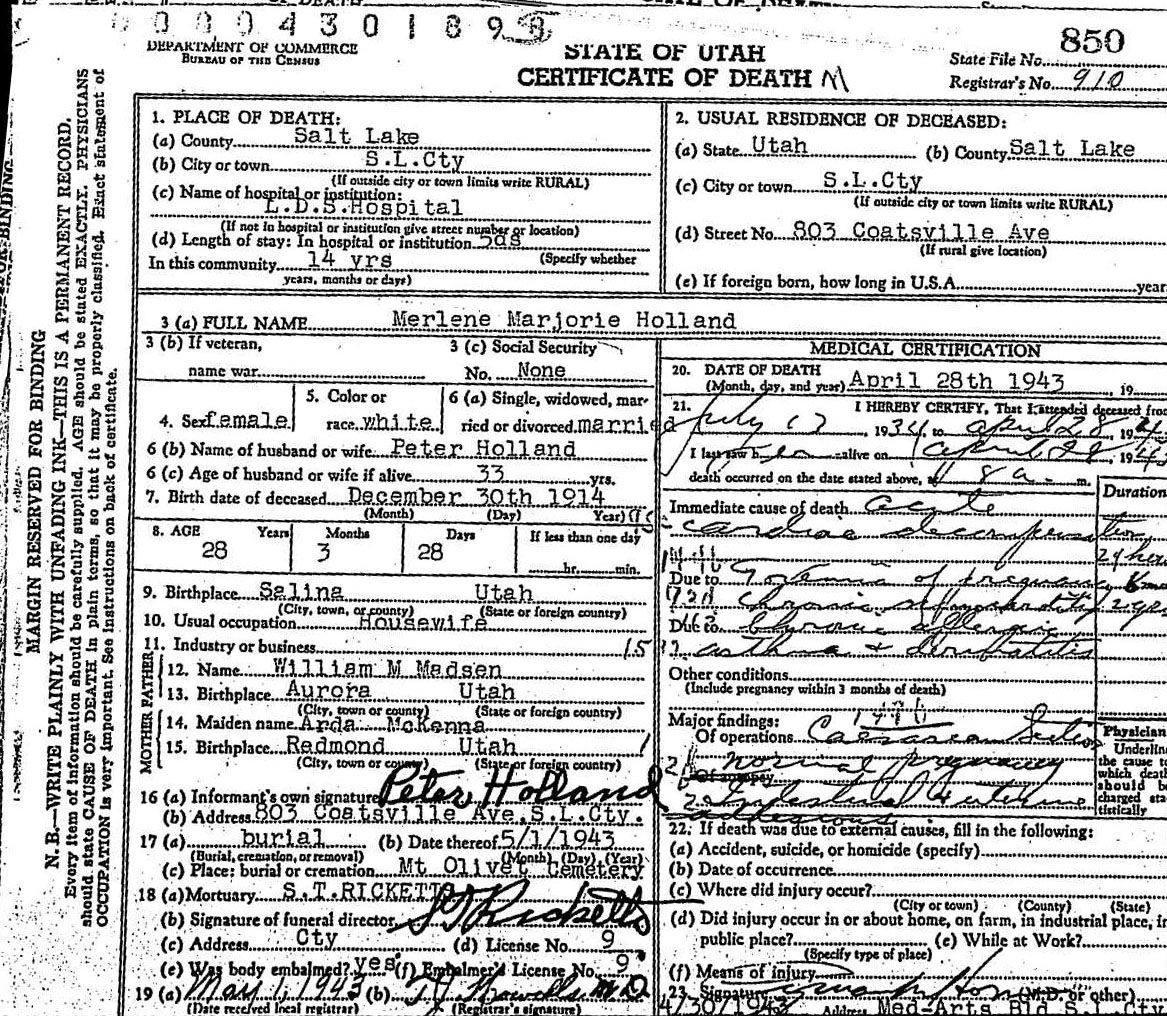 0 0 0 4 3 0 1 8 9 8
DEPARTMENT OF COMMERCE
BUREAU OF THE CENSUS
STATE OF UTAH
CERTIFICATE OF DEATH
850
State File No.
Registrar's No. 910
MARGIN RESERVED FOR BINDING
N. B.—WRITE PLAINLY WITH UNFADING INK—THIS IS A PERMANENT RECORD.
Every item of information should be carefully supplied. AGE should be stated EXACTLY. PHYSICIANS
should state CAUSE OF DEATH in plain terms, so that it may be properly classified. Exact statement of
OCCUPATION is very important. See instructions on back of certificate.
1. PLACE OF DEATH:
(a) County Salt Lake
(b) City or town S.L.Cty
(If outside city or town limits write RURAL)
(c) Name of hospital or institution:
L.D.S.Hospital
(If not in hospital or institution give street number or location)
(d) Length of stay: In hospital or institution 5ds
(Specify whether
In this community 14 yrs
years, months or days)
2. USUAL RESIDENCE OF DECEASED:
(a) State Utah (b) County Salt Lake
(c) City or town S.L.Cty
(If outside city or town limits write RURAL)
(d) Street No. 803 Coatsville Ave
(If rural give location)
(e) If foreign born, how long in U.S.A. year
3 (a) FULL NAME Merlene Marjorie Holland
3 (b) If veteran,
name war
3 (c) Social Security
No. None
4. Sex female
5. Color or
race white
6 (a) Single, widowed, mar-
ried or divorced married
6 (b) Name of husband or wife Peter Holland
6 (c) Age of husband or wife if alive 33 yrs.
7. Birth date of deceased December 30th 1914
(Month) (Day) Year)
8. AGE Years Months Days If less than one day
28 3 28 hr. min.
9. Birthplace Salina Utah
(City, town, or county) (State or foreign country)
10. Usual occupation Housewife
11. Industry or business
FATHER
12. Name William M Madsen
13. Birthplace Aurora Utah
(City, town or county) (State or foreign country)
MOTHER
14. Maiden name Arda McKenna
15. Birthplace Redmond Utah
(City, town, or county) (State or foreign country)
16 (a) Informant's own signature Peter Holland
(b) Address 803 Coatsville Ave.S.L.Cty.
17 (a) burial (b) Date thereof 5/1/1943
(Burial, cremation, or removal) (Month) (Day) (Year)
(c) Place: burial or cremation Mt Olivet Cemetery
18 (a) Mortuary S.T.RICKETTS
(b) Signature of funeral director Ricketts
(c) Address Cty (d) License No. 9
(e) Was body embalmed? yes (f) Embalmer's License No. 9
19 (a) May 1, 1943 (b) M D
(Date received local registrar) (Registrar's signature)
MEDICAL CERTIFICATION
20. DATE OF DEATH
(Month, day, and year) April 28th 1943 , 19
21. I HEREBY CERTIFY, That I attended deceased from
July 17, 1934, to April 28, 194
I last saw h alive on April 28, 194
death occurred on the date stated above, at 8 a. m.
Duration
Immediate cause of death Acute
cardiac decompensation
24 hou
Due to Toxemia of pregnancy
Chronic
Due to Chronic allergic
asthma & dermatitis
Other conditions
(Include pregnancy within 3 months of death)
Major findings:
Of operations Caesarean Section
normal pregnancy
Of autopsy
Intestinal & uterine
adhesions
Physician
Underline
the cause to
which death
should be
charged sta
tistically
22. If death was due to external causes, fill in the following:
(a) Accident, suicide, or homicide (specify)
(b) Date of occurrence
(c) Where did injury occur?
(City or town) (County) (State)
(d) Did injury occur in or about home, on farm, in industrial place, in
public place? (e) While at Work?
(Specify type of place)
(f) Means of injury
23. Signature (M.D. or other)
4/30/1943 Address Med-Arts Bld S.L.Cty